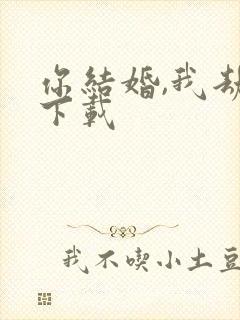 你結婚,我劫
下載
我不喫小土豆